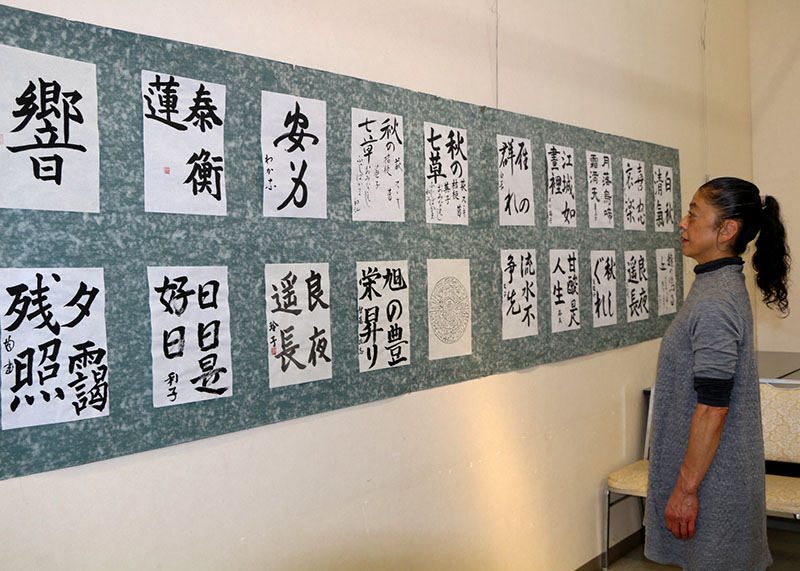 響
泰衡
蓮
安
秋の
七草
秋の
七草
雁の
群れ
江城如
畫裡
月落烏啼
霜満天
喜怒
哀楽
白秋
清氣
夕靄
残照
日日是
好日
良夜
遥長
玲子
旭の豊
栄昇り
流水不
争先
甘酸是
人生
秋し
ぐれ
良夜
遥長